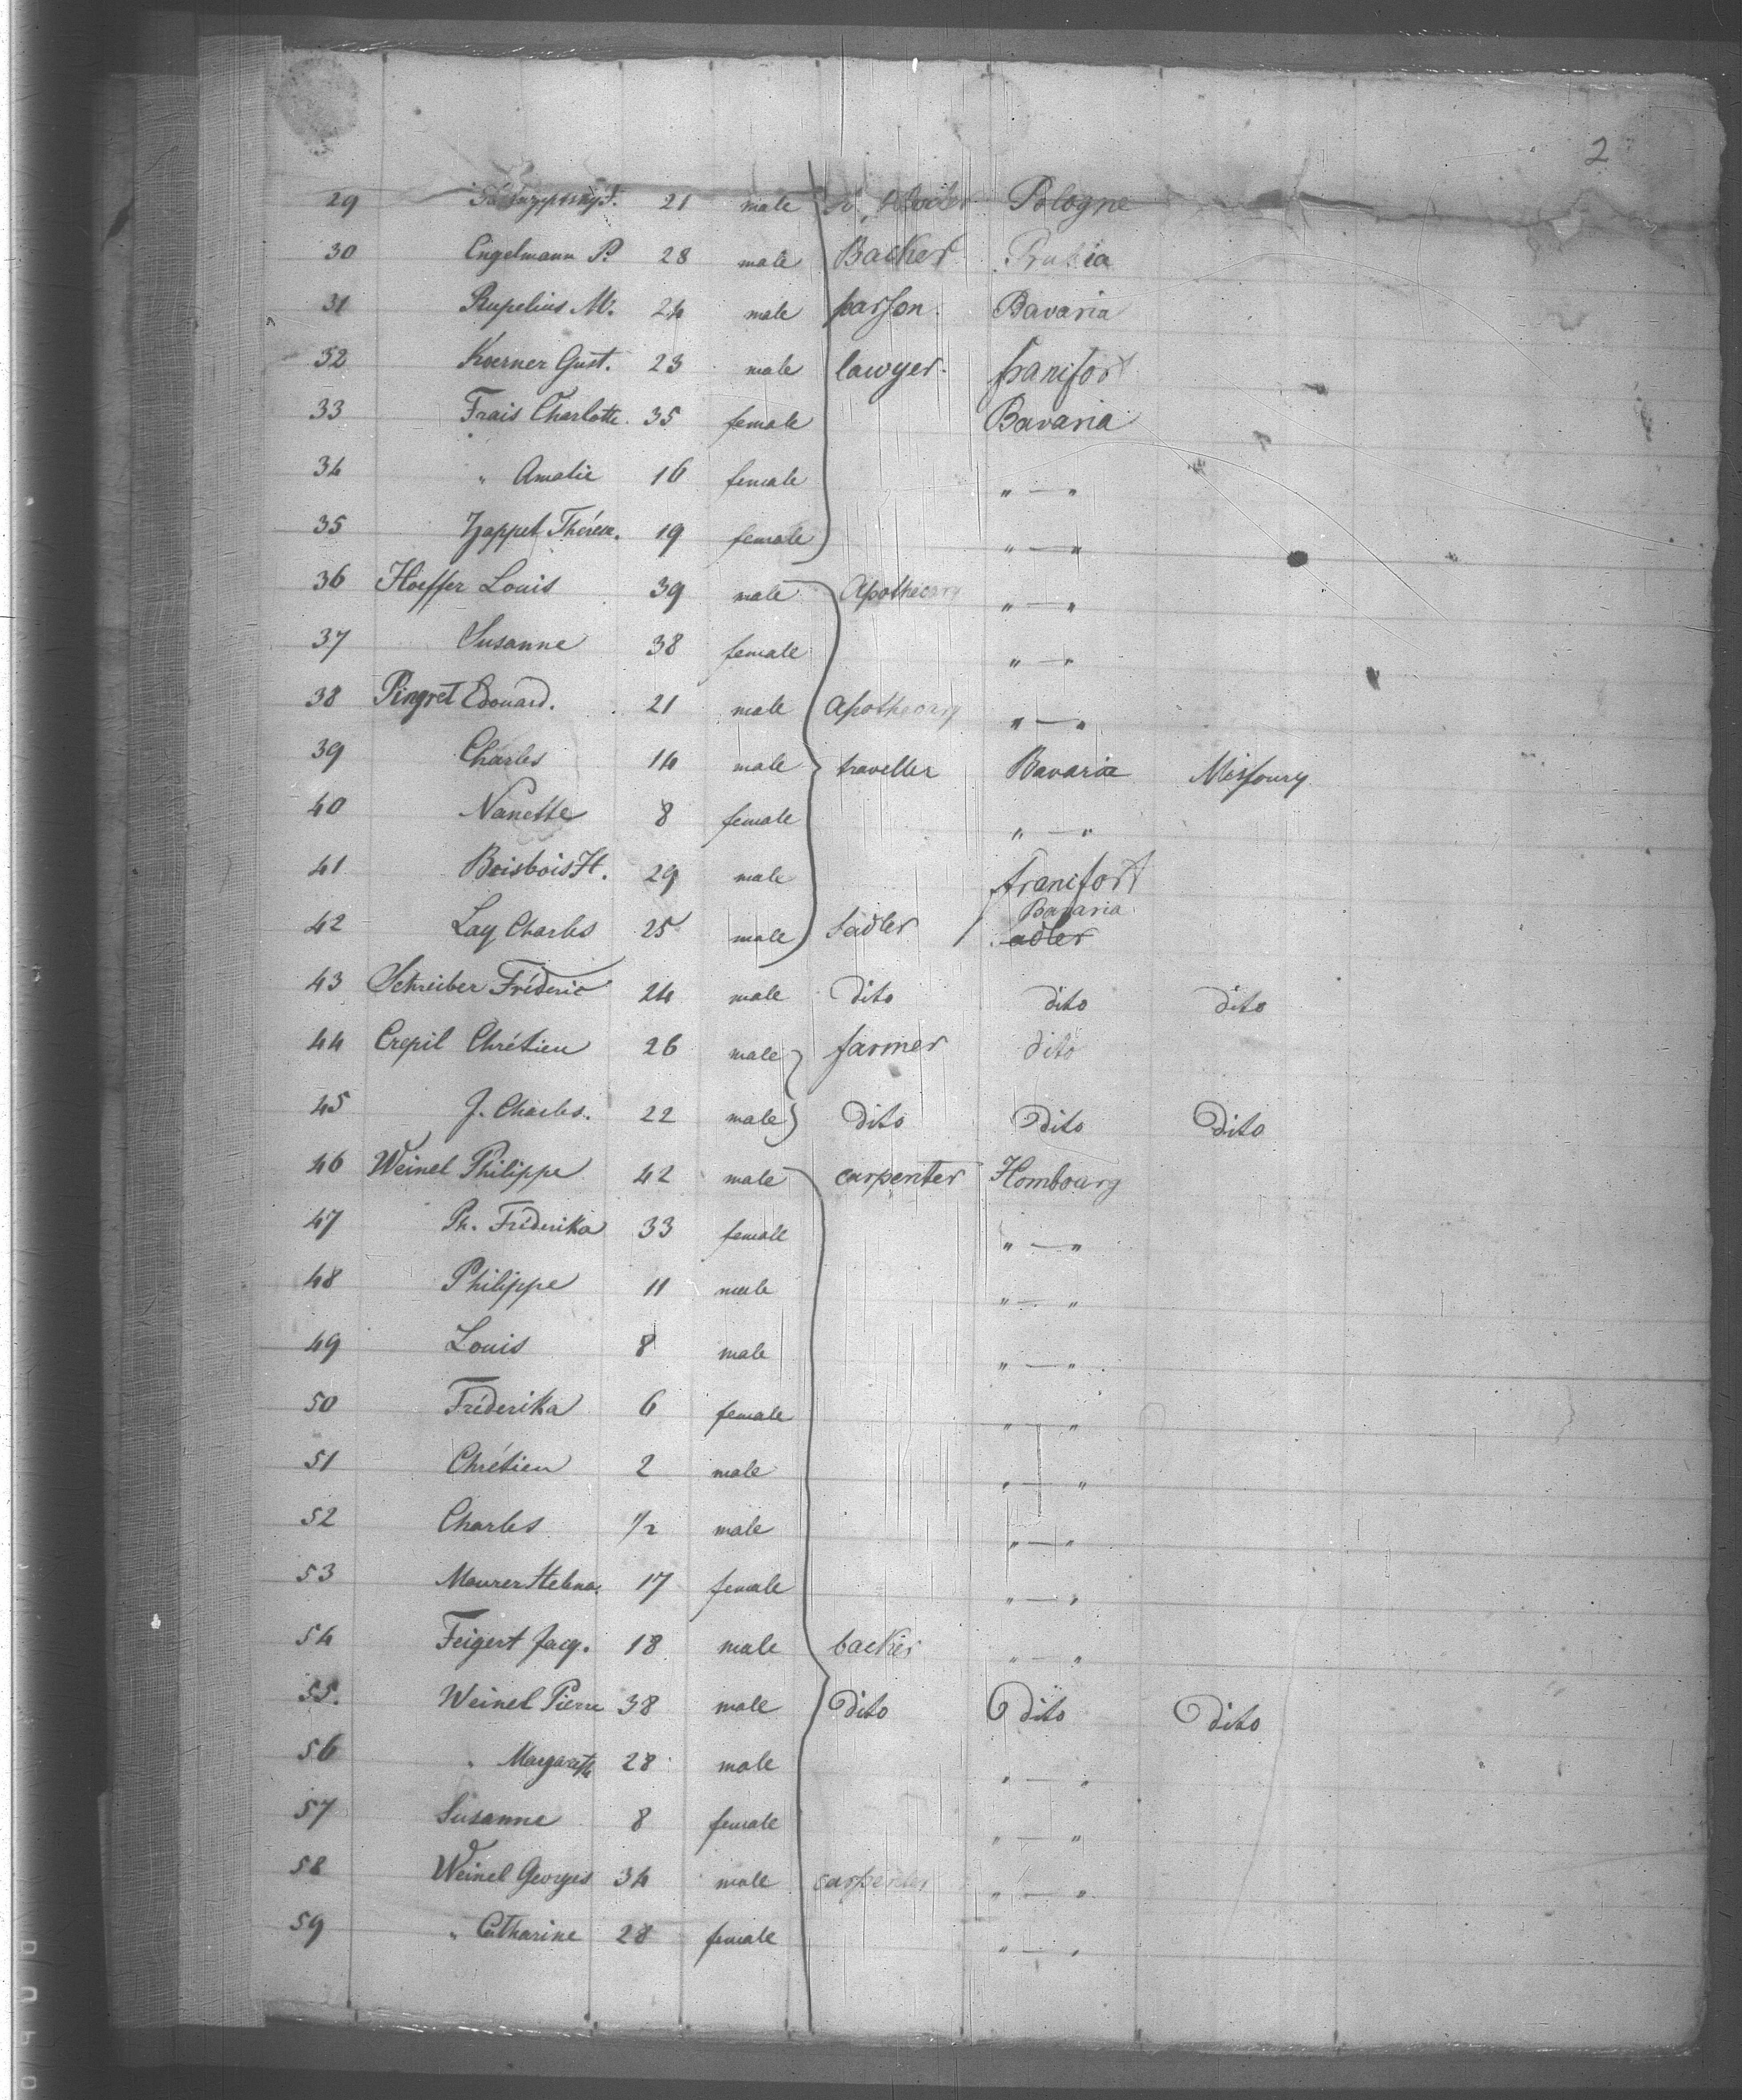 2
29 21 male Pologne
30 Engelmann P. 28 male Backer Rußia
31 Rupelius M. 24 male parson. Bavaria
32 Koerner Gust. 23 male lawyer. francfort
33 Frais Charlotte. 35 female Bavaria
34 " Amalie 16 female " — "
35 Zappet Thérese. 19 female " — "
36 Hoeffer Louis 39 male Apothecary " — "
37 Susanne 38 female " — "
38 Pingret Edouard. 21 male apothecary " — "
39 Charles 14 male traveller Bavaria Missoury
40 Nanette 8 female " — "
41 Boisbois H. 29 male francfort
42 Lay Charles 25 male Sadler Bavaria sadler
43 Schreiber Fréderic 24 male dito dito dito
44 Crepil Chrétien 26 male farmer dito
45 J. Charles. 22 male dito Dito Dito
46 Weinel Philippe 42 male carpenter Hombourg
47 Ph. Fréderika 33 female " — "
48 Philippe 11 male " — "
49 Louis 8 male " — "
50 Fréderika 6 female " — "
51 Chrétien 2 male " — "
52 Charles 1/2 male " — "
53 Maurer Helena. 17 female " — "
54 Feigert Jacq. 18 male backer " — "
55. Weinel Pierre 38 male Dito Dito Dito
56 " Margareth 28 male " — "
57 Susanne 8 female " — "
58 Weinel Georges 34 male carpenter " — "
59 " Catharine 28 female " — "